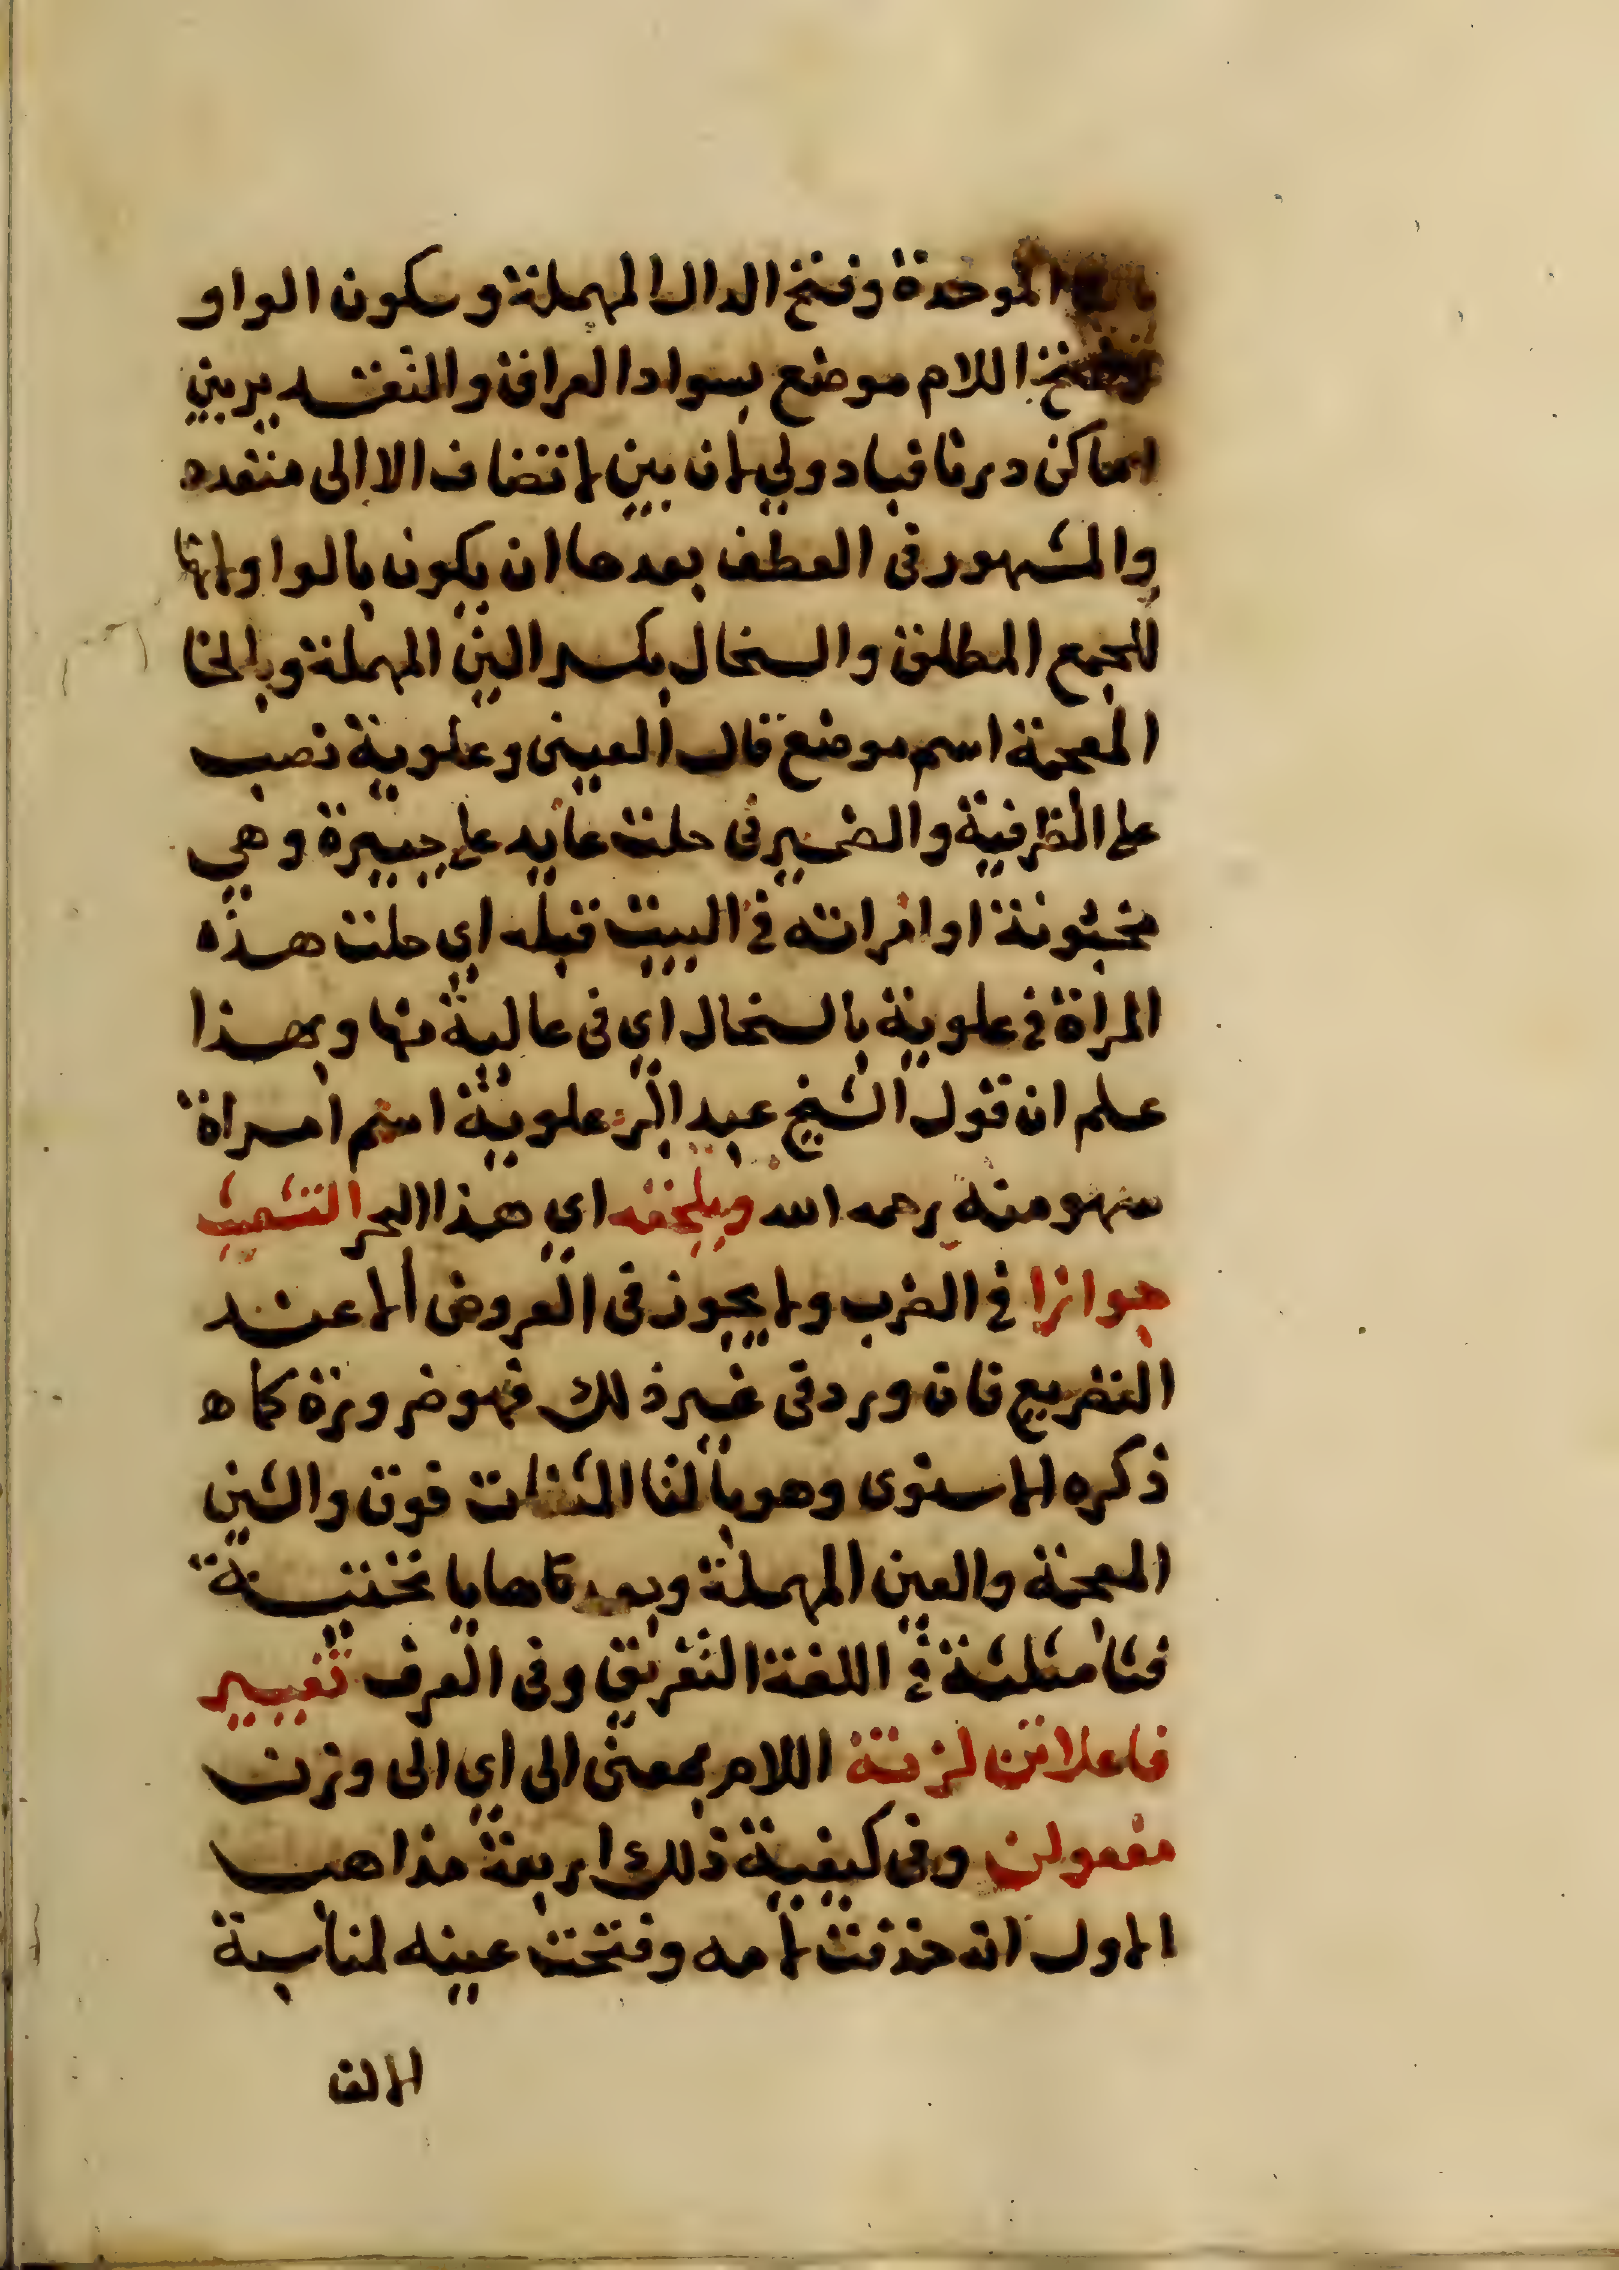 بالبا الموحدة وفتح الدال المهملة وسكون الواو
وفتح اللام موضع بسواد العراق والتقدير بين
اماكن درنا فبادولي لان بين لا تضاف الا الى متعدد
والمشهور في العطف بعدها ان يكون بالواو لانها
للجمع المطلق والسخال بكسر السين المهملة وبالخا
المعجمة اسم موضع قال العيني وعلوية نصب
على الظرفية والضمير في حلت عايد على جبيرة وهي
محبوبته او امراته في البيت قبله اي حلت هذه
المراة في علوية بالسخال اي في عالية منها وبهذا
علم ان قول الشيخ عبد البر علوية اسم امراة
سهو منه رحمه الله ويلحقه اي هذا البحر التشعيث
جوازا في الضرب ولا يجوز في العروض الا عند
التصريع فان ورد في غير ذلك فهو ضرورة كما ه
ذكره الاسنوى وهو بالتا المثنات فوق والشين
المعجمة والعين المهملة وبعدها يا تحتية
فثا مثلثة في اللغة التفريق وفي العرف تغيير
فاعلاتن لزنة اللام بمعنى الى اي الى وزن
مفعولن وفي كيفية ذلك اربعة مذاهب
الاول انه حذفت لامه وفتحت عينه لمناسبة
الالف